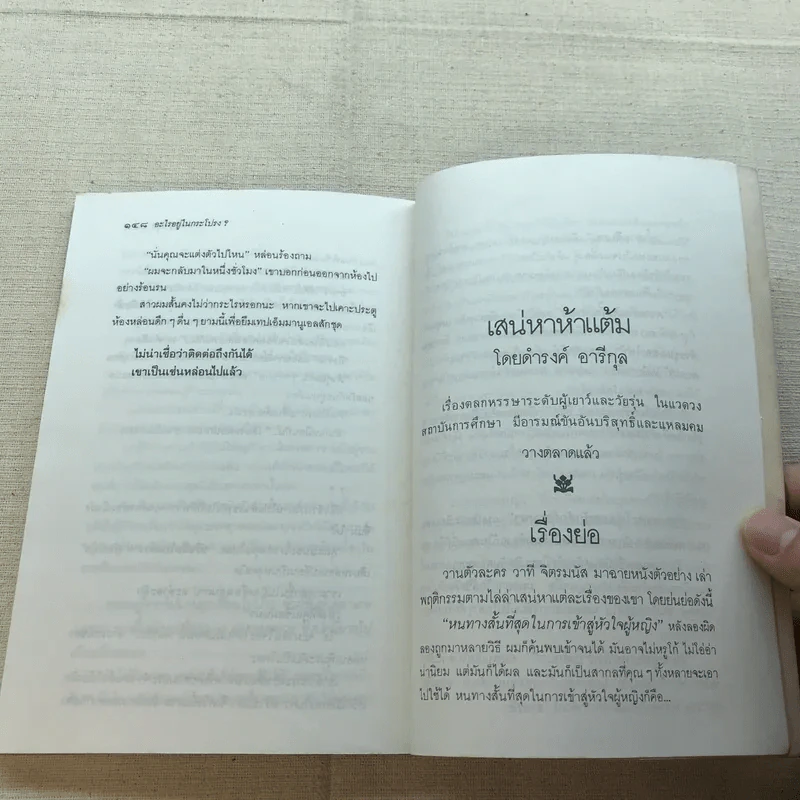 ๑๔๘ อะไรอยู่ในกระโปรง ?
"นั่นคุณจะแต่งตัวไปไหน" หล่อนร้องถาม
"ผมจะกลับมาในหนึ่งชั่วโมง" เขาบอกก่อนออกจากห้องไป
อย่างร้อนรน
สาวผมสั้นคงไม่ว่ากระไรหรอกนะ หากเขาจะไปเคาะประตู
ห้องหล่อนดึก ๆ ดื่น ๆ ยามนี้เพื่อยืมเทปเอ็มมานูเอลสักชุด
ไม่น่าเชื่อว่าติดต่อถึงกันได้
เขาเป็นเช่นหล่อนไปแล้ว
เสน่หาห้าแต้ม
โดยดำรงค์ อารีกุล
เรื่องตลกหรรษาระดับผู้เยาว์และวัยรุ่น ในแวดวง
สถาบันการศึกษา มีอารมณ์ขันอันบริสุทธิ์และแหลมคม
วางตลาดแล้ว
เรื่องย่อ
วานตัวละคร วาที จิตรมนัส มาฉายหนังตัวอย่าง เล่า
พฤติกรรมตามไล่ล่าเสน่หาแต่ละเรื่องของเขา โดยย่นย่อดังนี้
"หนทางสั้นที่สุดในการเข้าสู่หัวใจผู้หญิง" หลังลองผิด
ลองถูกมาหลายวิธี ผมก็ค้นพบเข้าจนได้ มันอาจไม่หรูโก้ ไม่โอ่อ่า
น่านิยม แต่มันก็ได้ผล และมันก็เป็นสากลที่คุณ ๆ ทั้งหลายจะเอา
ไปใช้ได้ หนทางสั้นที่สุดในการเข้าสู่หัวใจผู้หญิงก็คือ...